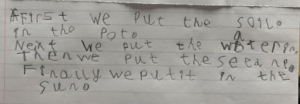 AFirst we put the soilo
in the Poto
Next we put the waterin.
Then we put the seed ino
Finally we put it in the
suno